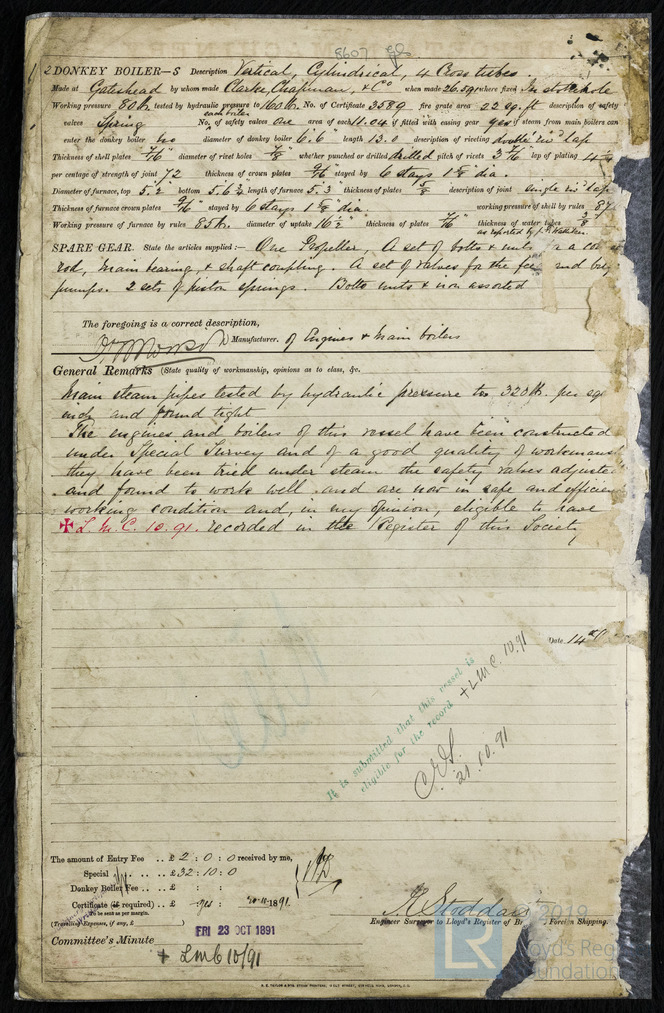 8607 gls
2 DONKEY BOILER—S Description Vertical, Cylindrical, 4 Cross tubes.
Made at Gateshead by whom made Clarke, Chapman, & Co when made 26.5.91 where fixed In stokehole
Working pressure 80 lb tested by hydraulic pressure to 160 lb. No. of Certificate 3589 fire grate area 22 sq. ft description of safety
valves Spring No. of safety valves each boiler One area of each 11.04 if fitted with casing gear yes if steam from main boilers can
enter the donkey boiler no diameter of donkey boiler 6' 6" length 13.0 description of riveting double riv'd lap
Thickness of shell plates 7/16 diameter of rivet holes 7/8" whether punched or drilled drilled pitch of rivets 3 1/16" lap of plating 4
per centage of strength of joint 72 thickness of crown plates 9/16" stayed by 6 stays 1 5/8" dia.
Diameter of furnace, top 5.2" bottom 5.6 1/2 length of furnace 5.3" thickness of plates 5/8" description of joint single riv'd lap
Thickness of furnace crown plates 9/16" stayed by 6 stays 1 5/8" dia. working pressure of shell by rules 87
Working pressure of furnace by rules 85 lb. diameter of uptake 16 1/2" thickness of plates 7/16 thickness of water tubes 3/8
as reported by
SPARE GEAR. State the articles supplied:— One Propeller, A set of bolts & nuts for a con
rod, main bearing, & shaft coupling. A set of valves for the feed and bilge
pumps. 2 sets of piston springs. Bolts nuts & iron assorted
The foregoing is a correct description,
Manufacturer. of Engines & Main boilers
General Remarks (State quality of workmanship, opinions as to class, &c.
Main steam pipes tested by hydraulic pressure to 320 lb. per sq
inch and found tight
The engines and boilers of this vessel have been constructed
under Special Survey and of a good quality of workmans
they have been tried under steam the safety valves adjuste
and found to work well and are now in safe and efficien
working condition and, in my opinion, eligible to have
✠ L.M.C. 10.91. recorded in the Register of this Society
Date 14th
It is submitted that this vessel is
eligible for the record +LMC. 10.91
21.10.91
The amount of Entry Fee .. £ 2 : 0 : 0 received by me,
Special .. .. £ 32 : 10 : 0
Donkey Boiler Fee .. £ : :
Certificate (if required) .. £ yes : 1891.
To be sent as per margin.
(Travelling Expenses, if any, £
Engineer Surveyor to Lloyd's Register of Br Foreign Shipping.
FRI 23 OCT 1891
Committee's Minute
+ LMC 10/91
© 2019
LR
Lloyd's Reg
Foundation